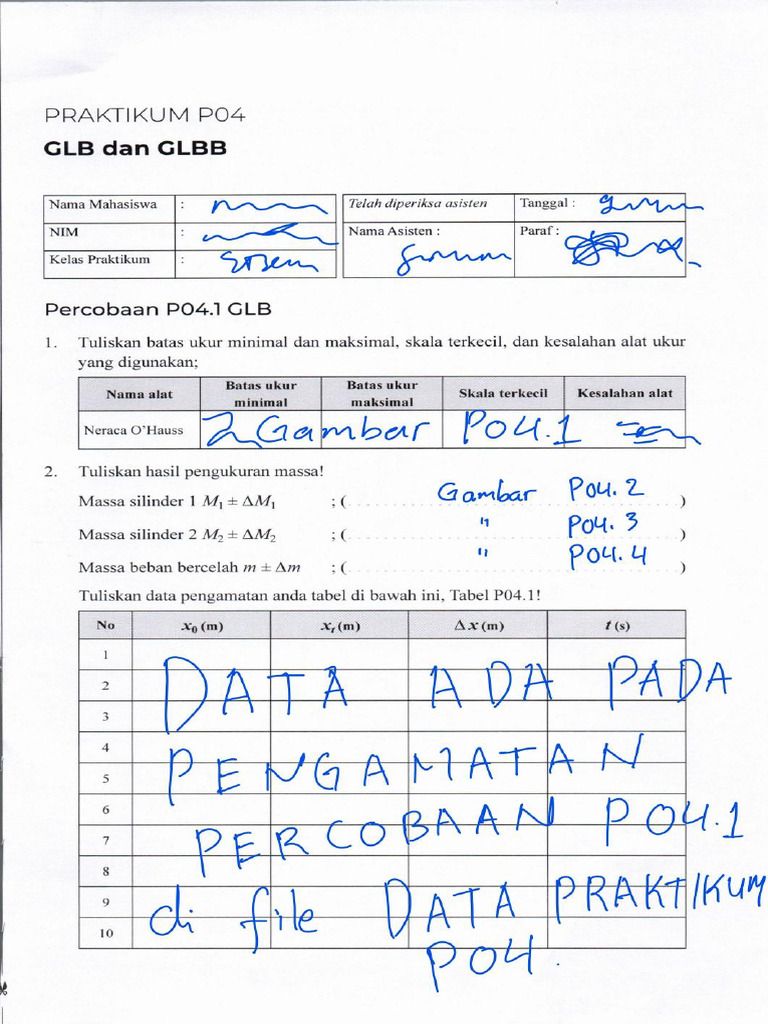 PRAKTIKUM P04
GLB dan GLBB
Nama Mahasiswa :
NIM :
Kelas Praktikum :
Telah diperiksa asisten
Tanggal :
Nama Asisten :
Paraf :
Percobaan P04.1 GLB
1. Tuliskan batas ukur minimal dan maksimal, skala terkecil, dan kesalahan alat ukur
yang digunakan;
Nama alat Batas ukur minimal Batas ukur maksimal Skala terkecil Kesalahan alat
Neraca O'Hauss Gambar P04.1
2. Tuliskan hasil pengukuran massa!
Massa silinder 1 M₁ ± ΔM₁ ; ( Gambar P04.2 )
Massa silinder 2 M₂ ± ΔM₂ ; ( " P04.3 )
Massa beban bercelah m ± Δm ; ( " P04.4 )
Tuliskan data pengamatan anda tabel di bawah ini, Tabel P04.1!
No x₀ (m) xₜ (m) Δx (m) t (s)
1
2
3
4
5
6
7
8
9
10
DATA ADA PADA
PENGAMATAN
PERCOBAAN P04.1
di file DATA PRAKTIKUM
P04.